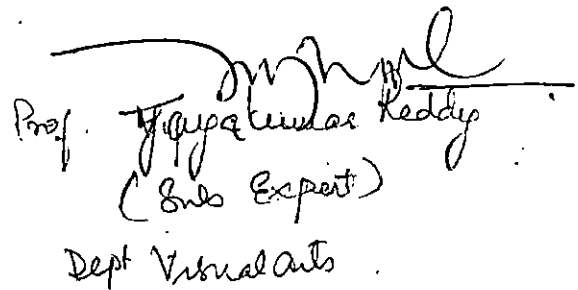 Prof. Vijayakumar Reddy
(Sub Expert)
Dept Visual arts.